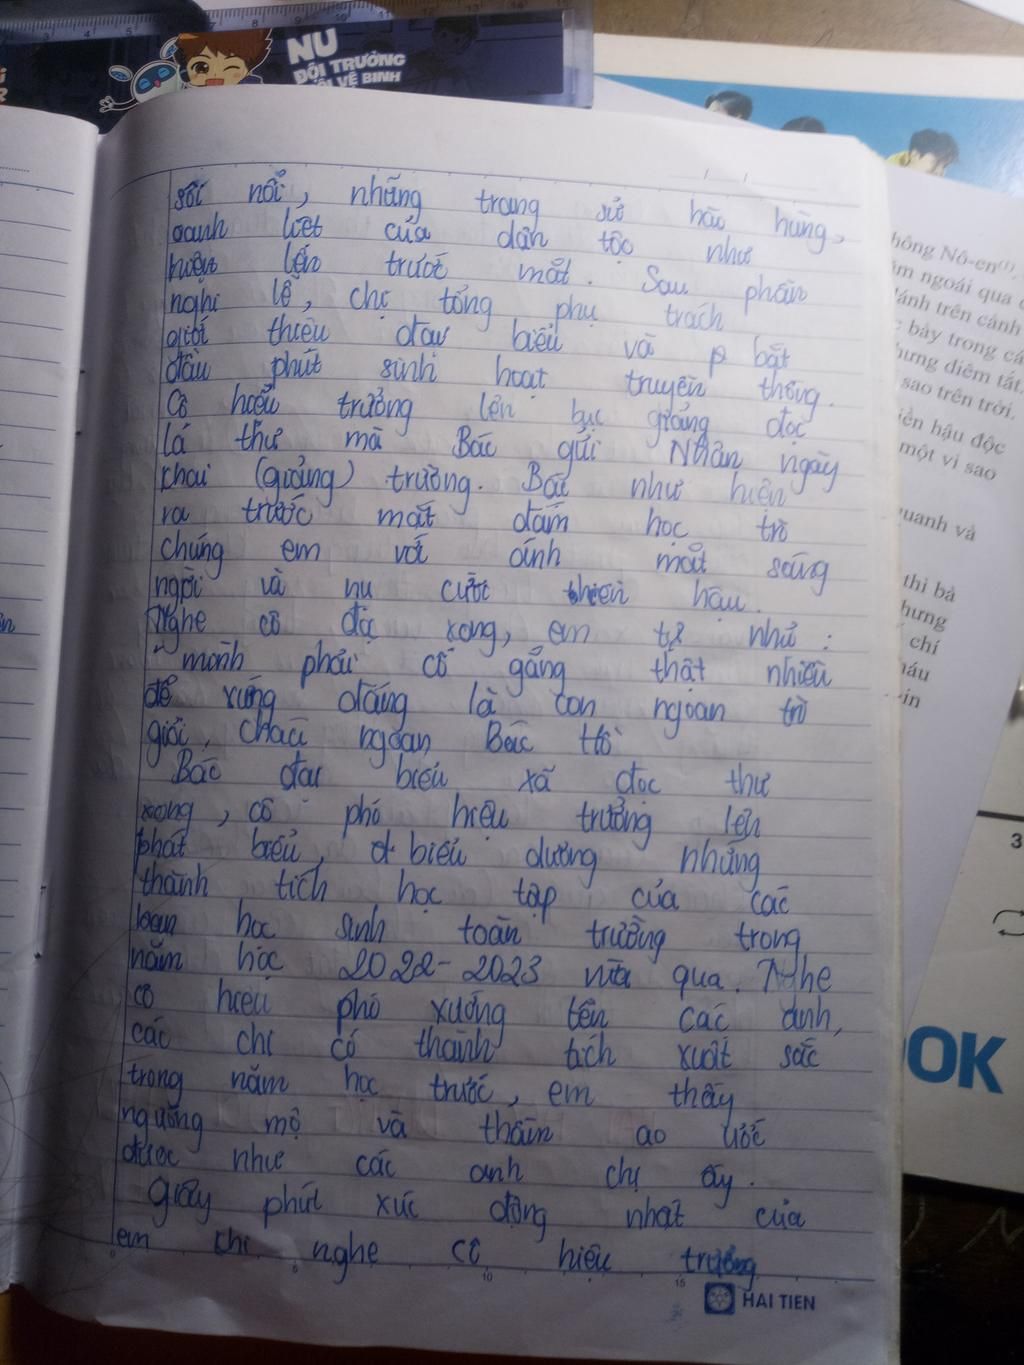 NU
ĐỘI TRƯỞNG
ĐỘI VỆ BINH
sôi nổi, những trang sử hào hùng,
oanh liệt của dân tộc như
hiện lên trước mắt. Sau phần
nghi lễ, chị tổng phụ trách
giới thiệu đại biểu và p bắt
đầu phút sinh hoạt truyền thống.
Cô hiệu trưởng lên bục giảng đọc
lá thư mà Bác gửi Nhân ngày
khai (giảng) trường. Bác như hiện
ra trước mắt đám học trò
chúng em với ánh mắt sáng
ngời và nụ cười hiền hậu.
Nghe cô đọc xong, em tự nhủ:
"mình phải cố gắng thật nhiều
để xứng đáng là con ngoan trò
giỏi, cháu ngoan Bác Hồ
Bác đại biểu xã đọc thư
xong, cô phó hiệu trưởng lên
phát biểu, d biểu dương những
thành tích học tập của các
bạn học sinh toàn trường trong
năm học 2022-2023 vừa qua. Nghe
cô hiệu phó xướng tên các anh,
các chị có thành tích xuất sắc
trong năm học trước, em thấy
ngưỡng mộ và thầm ao ước
được như các anh chị ấy.
Giây phút xúc động nhất của
em khi nghe cô hiệu trưởng
HAI TIEN
Nô-en(1),
ngoái qua
đánh trên cánh
bày trong
nhưng diêm tắt.
sao trên trời.
hiền hậu độc
một vì sao
quanh và
thì bà
nhưng
chí
3
OK